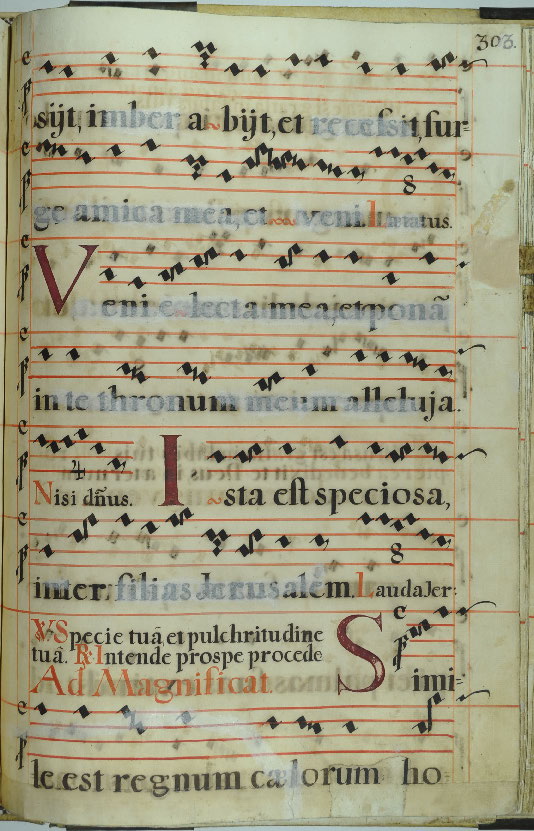 303.
sijt, imber abijt, et recessit, sur-
ge amica mea, et veni. Lætatus.
8
Veni electa mea, et ponã
in te thronum meum alleluja.
4
Nisi dñus. Ista est speciosa,
inter filias Jerusalem. Lauda Jer:
8
V. Specie tuã et pulchritudine
tuã. R. Intende prospe procede
Ad Magnificat. Simi-
le est regnum cælorum ho-